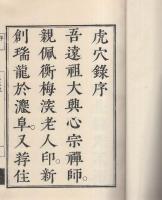 虎穴錄序
吾遠祖大興心宗禪師。
親佩衡梅深老人印。新
創瑞龍於濃阜。又莅住